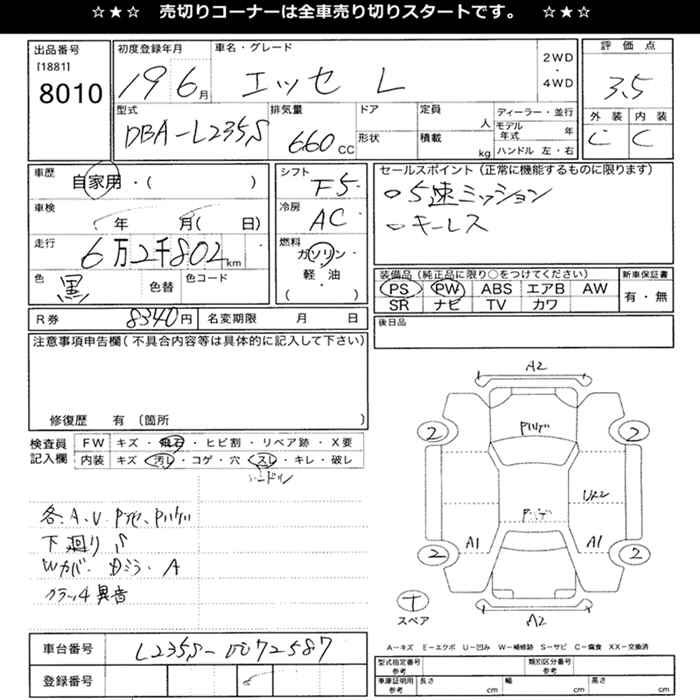 ☆★☆ 売切りコーナーは全車売り切りスタートです。 ☆★☆
出品番号 初度登録年月 車名・グレード 評価点
[1881]
8010 19 6月 エッセ L 2WD・4WD 3.5
型式 排気量 ドア 定員 ディーラー・並行 外装 内装
DBA-L235S 660cc 形状 積載 人 kg モデル年式 年 C C
ハンドル 左・右
車歴 自家用・( ) シフト F5 セールスポイント(正常に機能するものに限ります)
○5速ミッション
○キーレス
車検 年 月( 日) 冷房 AC
走行 6万2千802km 燃料 ガソリン・軽油・( )
色 黒 色替 色コード
装備品(純正品に限り○をつけてください) 新車保証書
PS PW ABS エアB AW 有・無
SR ナビ TV カワ
R券 8340円 名変期限 月 日 後日品
注意事項申告欄(不具合内容等は具体的に記入して下さい)
修復歴 有(箇所 )
検査員記入欄 FW キズ・飛石・ヒビ割・リペア跡・X要
内装 キズ・汚し・コゲ・穴・スレ・キレ・破レ
ハンドル
各、A、U
下廻りS
Wカバー Dミラー A
クラッチ異音
A2
2 2
Pハゲ
UX2
Pハゲ
A1 A1
2 2
T
スペア A2
A-キズ E-エクボ U-凹み W-補修跡 S-サビ C-腐食 XX-交換済
車台番号 L235S-0072587
登録番号
型式指定番号 参考 類別区分番号 参考
車庫証明用 参考 長さ cm 幅 cm 高さ cm